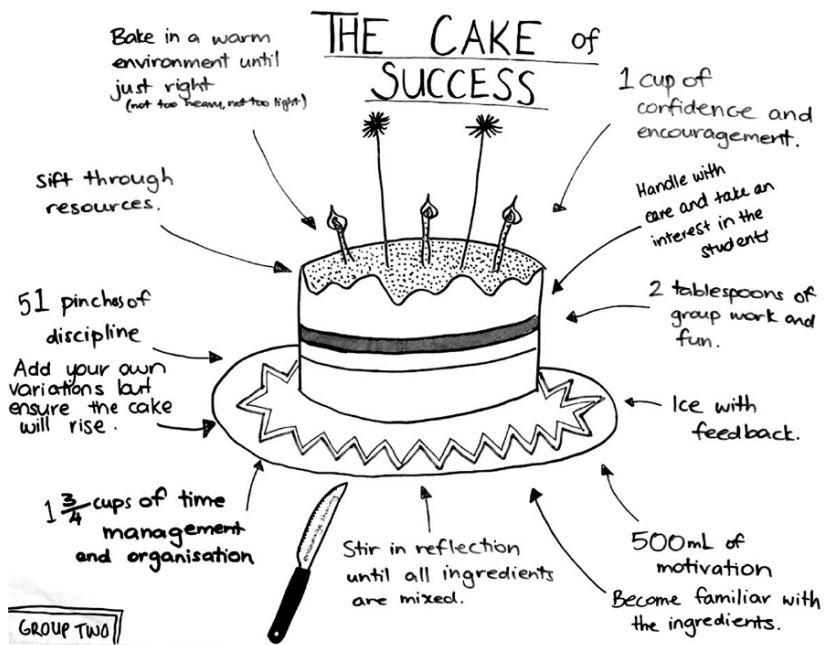 THE CAKE of
SUCCESS
Bake in a warm
environment until
just right
(not too heavy, not too light)
1 cup of
confidence and
encouragement.
Sift through
resources.
Handle with
care and take an
interest in the
students
51 pinches of
discipline
2 tablespoons of
group work and
fun.
Add your own
variations but
ensure the cake
will rise.
Ice with
feedback.
1 3/4 cups of time
management
and organisation
encourage sharing
Stir in reflection
until all ingredients
are mixed.
500mL of
motivation
Become familiar with
the ingredients.
GROUP TWO